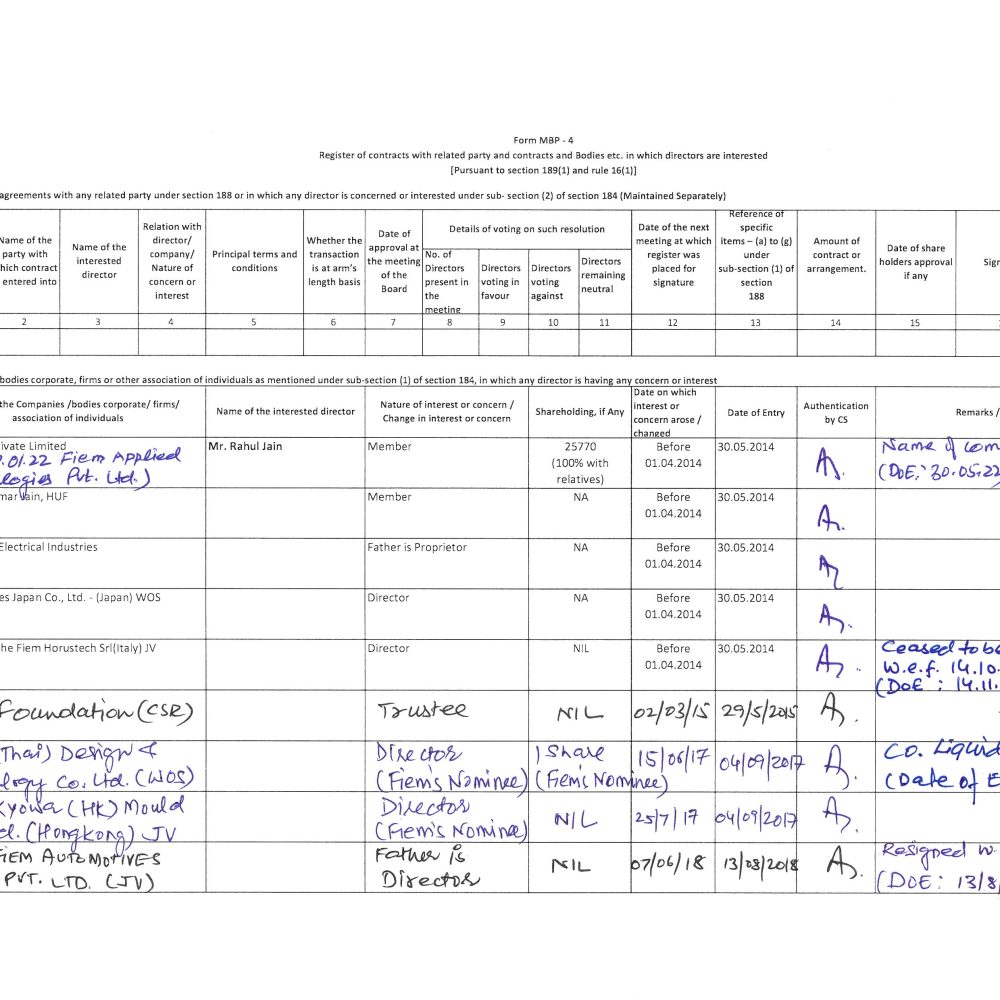 Form MBP - 4
Register of contracts with related party and contracts and Bodies etc. in which directors are interested
[Pursuant to section 189(1) and rule 16(1)]
agreements with any related party under section 188 or in which any director is concerned or interested under sub- section (2) of section 184 (Maintained Separately)
Name of the party with which contract entered into
Name of the interested director
Relation with director/ company/ Nature of concern or interest
Principal terms and conditions
Whether the transaction is at arm's length basis
Date of approval at the meeting of the Board
Details of voting on such resolution
No. of Directors present in the meeting
Directors voting in favour
Directors voting against
Directors remaining neutral
Date of the next meeting at which register was placed for signature
Reference of specific items – (a) to (g) under sub-section (1) of section 188
Amount of contract or arrangement.
Date of share holders approval if any
Sign
2 3 4 5 6 7 8 9 10 11 12 13 14 15
bodies corporate, firms or other association of individuals as mentioned under sub-section (1) of section 184, in which any director is having any concern or interest
the Companies /bodies corporate/ firms/ association of individuals
Name of the interested director
Nature of interest or concern / Change in interest or concern
Shareholding, if Any
Date on which interest or concern arose / changed
Date of Entry
Authentication by CS
Remarks /
ivate Limited Mr. Rahul Jain Member 25770 Before 30.05.2014 Name of com
.01.22 Fiem Applied (100% with 01.04.2014 (DoE: 30.05.22
logies Pvt. Ltd.) relatives)
mar Jain, HUF Member NA Before 30.05.2014
01.04.2014
Electrical Industries Father is Proprietor NA Before 30.05.2014
01.04.2014
es Japan Co., Ltd. - (Japan) WOS Director NA Before 30.05.2014
01.04.2014
he Fiem Horustech Srl(Italy) JV Director NIL Before 30.05.2014 Ceased to be
01.04.2014 w.e.f. 14.10.
(DoE : 14.11.
Foundation (CSR) Trustee NIL 02/03/15 29/5/2015
(Thai) Design & Director 1 Share 15/06/17 04/09/2017 Co. Liquid
logy Co. Ltd. (WOS) (Fiem's Nominee) (Fiem's Nominee) (Date of E
Kyowa (HK) Mould Director NIL 25/7/17 04/09/2017
d. (Hongkong) JV (Fiem's Nominee)
FIEM AUTOMOTIVES Father is NIL 07/06/18 13/08/2018 Resigned w.
PVT. LTD. (JV) Director (DOE: 13/8/